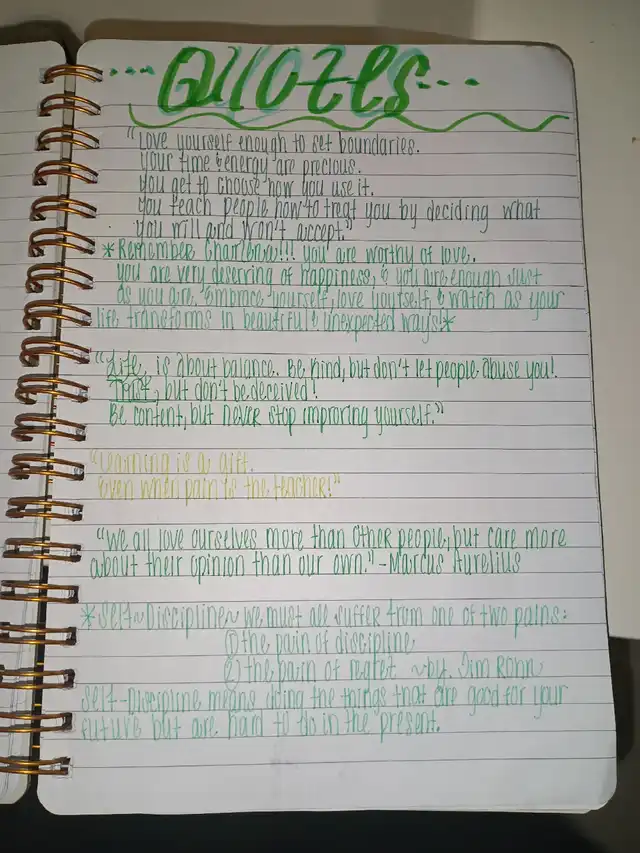 ...QUOTES...
"Love yourself enough to set boundaries.
Your time & energy are precious.
You get to choose how you use it.
You teach people how to treat you by deciding what
you will and won't accept."
*Remember Charleen!!! you are worthy of love.
you are very deserving of happiness, & you are enough Just
as you are. Embrace yourself, love yourself, & watch as your
life transforms in beautiful & unexpected ways!*
"Life, is about balance. Be kind, but don't let people abuse you!
Trust, but don't be deceived!
Be content, but never stop improving yourself."
"Learning is a gift.
Even when pain is the teacher!"
"We all love ourselves more than other people, but care more
about their opinion than our own." -Marcus Aurelius
*Self~Discipline~ we must all suffer from one of two pains:
① the pain of discipline
② the pain of regret ~by. Jim Rohn
Self-Discipline means doing the things that are good for your
future but are hard to do in the present.